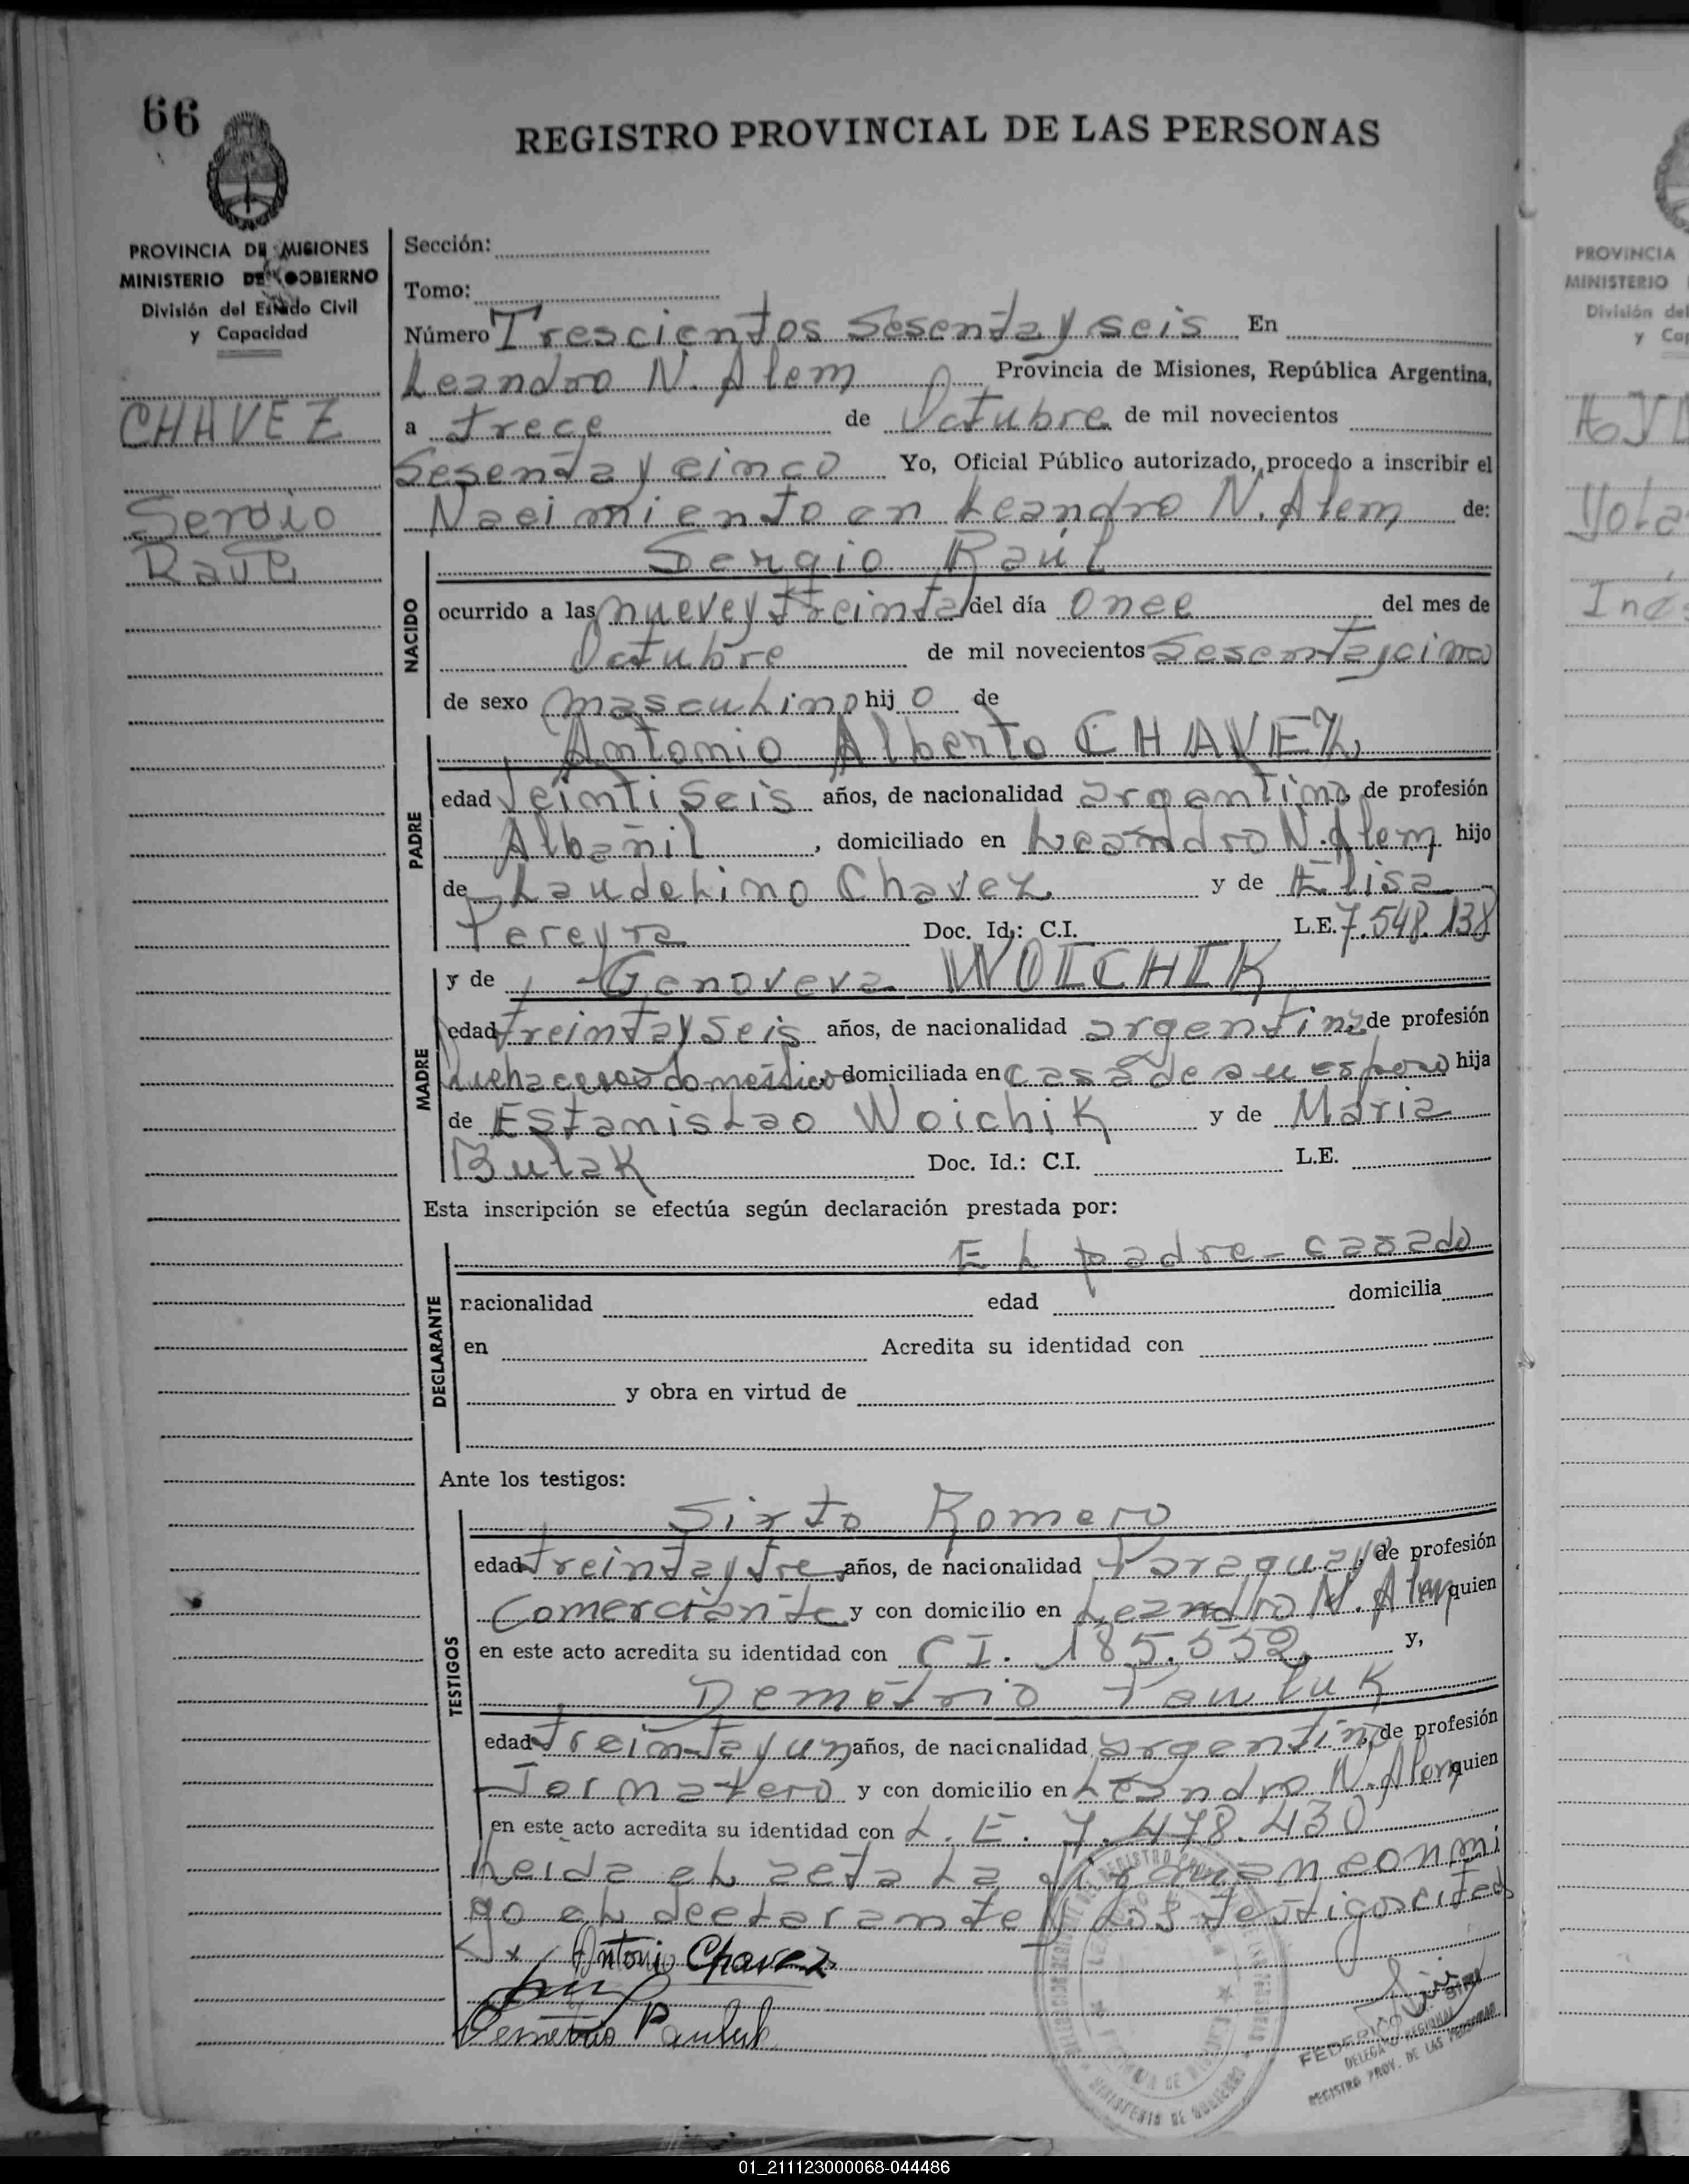 66
REGISTRO PROVINCIAL DE LAS PERSONAS
PROVINCIA DE MISIONES
MINISTERIO DE GOBIERNO
División del Estado Civil
y Capacidad
CHAVEZ
Sergio
Raúl
Sección:
Tomo:
Número Trescientos Sesenta y seis En
Leandro N. Alem Provincia de Misiones, República Argentina,
a trece de Octubre de mil novecientos
Sesenta y cinco Yo, Oficial Público autorizado, procedo a inscribir el
Nacimiento en Leandro N. Alem de:
NACIDO
Sergio Raúl
ocurrido a las nueve y treinta del día once del mes de
Octubre de mil novecientos Sesenta y cinco
de sexo masculino hijo de
PADRE
Antonio Alberto CHAVEZ,
edad Veintiseis años, de nacionalidad argentino, de profesión
Albañil, domiciliado en Leandro N. Alem hijo
de Laudelino Chavez y de Elisa
Pereyra Doc. Id.: C.I. L.E. 7.548.138
MADRE
y de Genoveva WOICHIK
edad treinta y seis años, de nacionalidad argentina, de profesión
Quehaceres domésticos domiciliada en casa de su esposo hija
de Estanislao Woichik y de Maria
Butak Doc. Id.: C.I. L.E.
Esta inscripción se efectúa según declaración prestada por:
DECLARANTE
El padre - casado
nacionalidad edad domicilia
en Acredita su identidad con
y obra en virtud de
Ante los testigos:
TESTIGOS
Sixto Romero
edad treinta y tres años, de nacionalidad Paraguaya, de profesión
Comerciante y con domicilio en Leandro N. Alem quien
en este acto acredita su identidad con C I. 185.552, y,
Demétrio Pauluk
edad treinta y un años, de nacionalidad argentino, de profesión
Jornalero y con domicilio en Leandro N. Alem quien
en este acto acredita su identidad con L. E. 7.478.430
Leida el acta la firman conmi
go el declarante y los testigos citados
Antonio Chavez
Demetrio Pauluk
FEDERICO
DELEGADO REGIONAL
REGISTRO PROV. DE LAS PERSONAS
MINISTERIO DE GOBIERNO
PROVINCIA
MINISTERIO
División del
y Cap
Yola
Iné
01_211123000068-044486